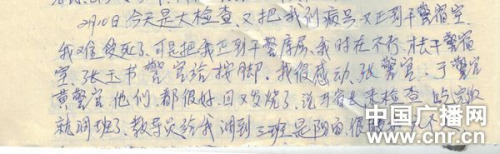 2月10日今天是大检查又把我们病号又正到干警宿室
我难受死了,可是把我正到干警库房,我时在不行,去干警宿
室,张玉书警官给按脚,我很感动,张警官,于警官
黄警官,他们,都很好,日又发烧了,说开容是来检查,吃完饭
就调班了,教导员给我调到三班是阴面,很
中国广播网
www.cnr.cn